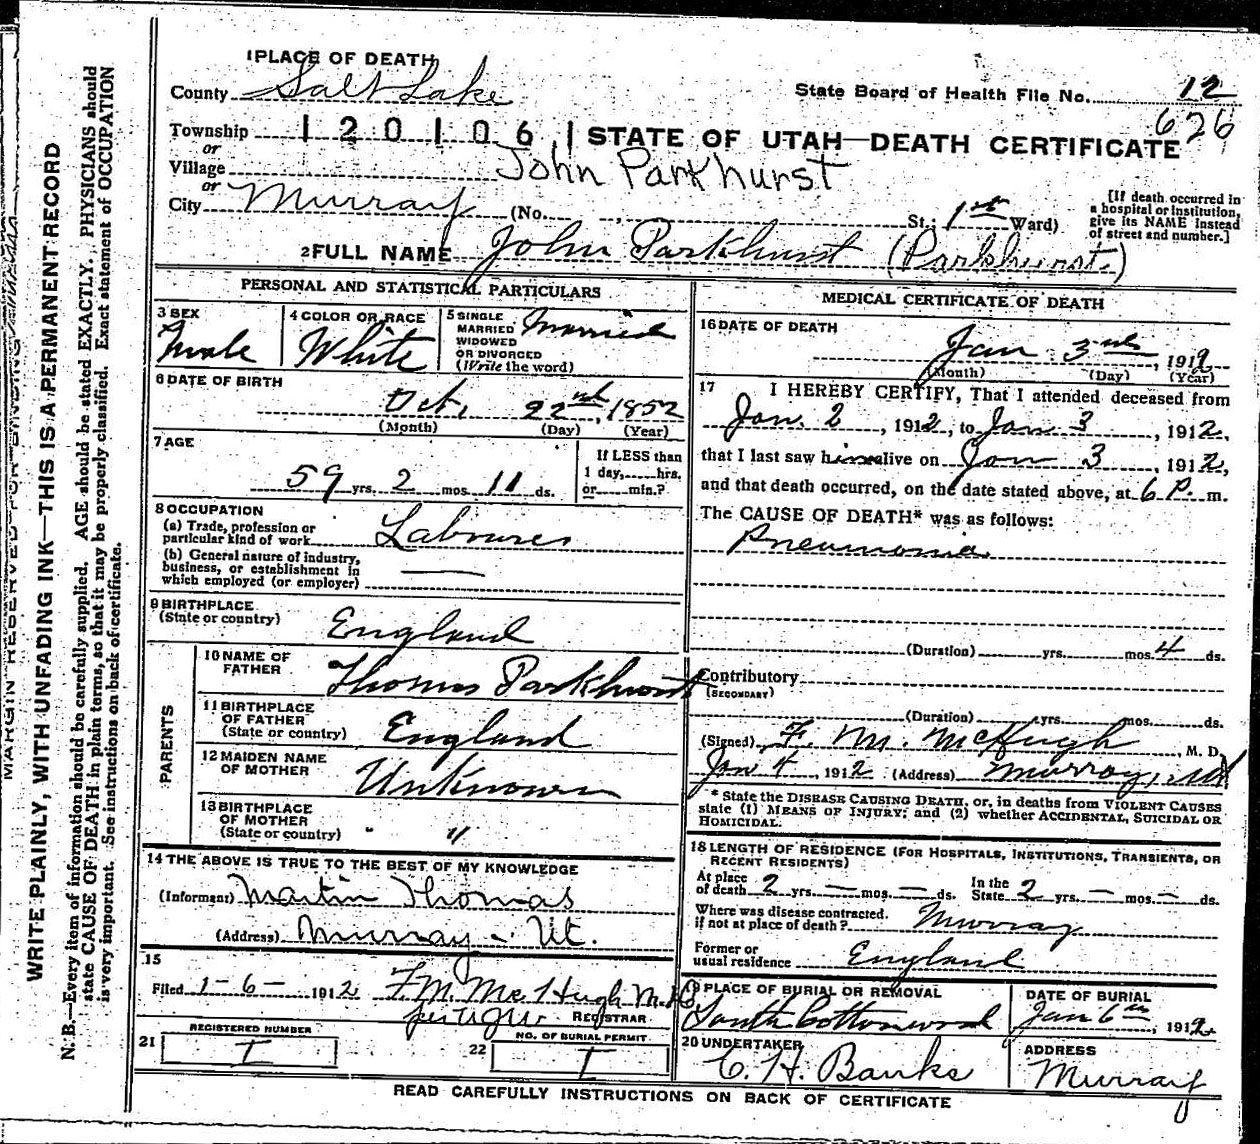 MARGIN RESERVED FOR BINDING
WRITE PLAINLY, WITH UNFADING INK—THIS IS A PERMANENT RECORD
N. B.—Every item of information should be carefully supplied. AGE should be stated EXACTLY. PHYSICIANS should
state CAUSE OF DEATH in plain terms, so that it may be properly classified. Exact statement of OCCUPATION
is very important. See instructions on back of certificate.
1 PLACE OF DEATH
County Salt Lake
State Board of Health File No. 12
626
Township 120106 STATE OF UTAH—DEATH CERTIFICATE
or
Village John Parkhurst
or
City Murray (No. , St.; 1st Ward)
[If death occurred in
a hospital or institution,
give its NAME instead
of street and number.]
2 FULL NAME John Parkhurst (Parkhurst.)
PERSONAL AND STATISTICAL PARTICULARS
3 SEX
Male
4 COLOR OR RACE
White
5 SINGLE
MARRIED
WIDOWED
OR DIVORCED
(Write the word)
Married
6 DATE OF BIRTH
Oct. 22nd, 1852
(Month) (Day) (Year)
7 AGE
59 yrs. 2 mos. 11 ds.
If LESS than
1 day, hrs.
or min.?
8 OCCUPATION
(a) Trade, profession or
particular kind of work Labourer
(b) General nature of industry,
business, or establishment in
which employed (or employer) —
9 BIRTHPLACE
(State or country) England
PARENTS
10 NAME OF
FATHER Thomas Parkhurst
11 BIRTHPLACE
OF FATHER
(State or country) England
12 MAIDEN NAME
OF MOTHER Unknown
13 BIRTHPLACE
OF MOTHER
(State or country) " "
14 THE ABOVE IS TRUE TO THE BEST OF MY KNOWLEDGE
(Informant) Martin Thomas
(Address) Murray - Ut.
15
Filed 1-6- 1912 F. M. McHugh M.D.
REGISTRAR
21 REGISTERED NUMBER
I
22 NO. OF BURIAL PERMIT
I
MEDICAL CERTIFICATE OF DEATH
16 DATE OF DEATH
Jan 3rd, 1912
(Month) (Day) (Year)
17 I HEREBY CERTIFY, That I attended deceased from
Jan. 2, 1912, to Jan 3, 1912,
that I last saw him alive on Jan 3, 1912,
and that death occurred, on the date stated above, at 6 P. m.
The CAUSE OF DEATH* was as follows:
Pneumonia
(Duration) yrs. mos. 4 ds.
Contributory
(SECONDARY)
(Duration) yrs. mos. ds.
(Signed) F. M. McHugh, M. D.
Jan 4, 1912 (Address) Murray, Ut
* State the DISEASE CAUSING DEATH, or, in deaths from VIOLENT CAUSES
state (1) MEANS OF INJURY; and (2) whether ACCIDENTAL, SUICIDAL OR
HOMICIDAL.
18 LENGTH OF RESIDENCE (FOR HOSPITALS, INSTITUTIONS, TRANSIENTS, OR
RECENT RESIDENTS)
At place
of death 2 yrs. — mos. — ds.
In the
State 2 yrs. — mos. — ds.
Where was disease contracted,
if not at place of death? Murray
Former or
usual residence England
19 PLACE OF BURIAL OR REMOVAL
South Cottonwood
DATE OF BURIAL
Jan 6th, 1912
20 UNDERTAKER
C. H. Banks
ADDRESS
Murray
READ CAREFULLY INSTRUCTIONS ON BACK OF CERTIFICATE